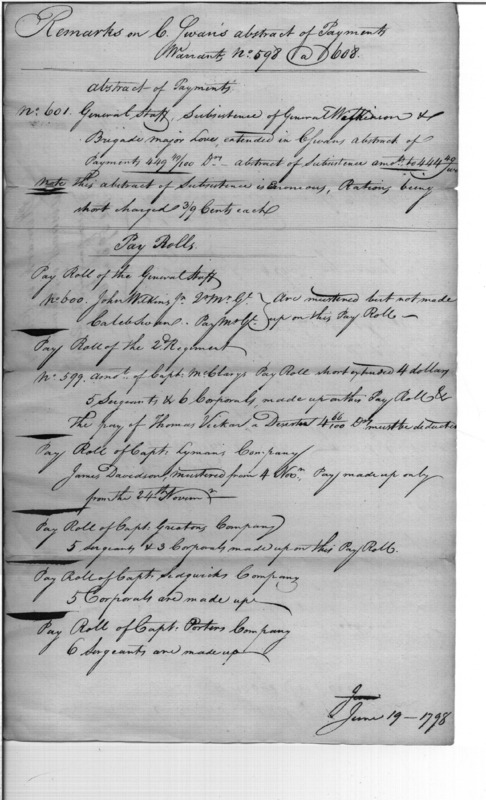 Remarks on C. Swan's abstract of Payments
Warrants No. 598 a 608.
abstract of Payments
No. 601. General Staff, Subsistence of General Wilkinson &
Brigade major Love, extended in C Swans abstract of
Payments 449 /100 Drs abstract of Subsistence amots. to 444
Note this abstract of Subsistence is Eronious, Rations being
short charged 3/9 Cents each
Pay Rolls.
Pay Roll of the General Staff
No. 600. John Wilkins Jr. Qr. Mr. Gl. } Are mustered but not made
Caleb Swan - Pay Mr. Gl. } up on this Pay Roll -
Pay Roll of the 2d Regiment
No. 599. amot. of Capt. McClarys Pay Roll short extended 4 dollars
5 Sergeants & 6 Corporals made up on this Pay Roll &
The pay of Thomas a Deserter 4 66/100 Drs must be deducted
Pay Roll of Capt. Lymans Company
James Davidson, mustered from 4 Novr. Pay made up only
from the 24th Novemr.
Pay Roll of Capt. Greatons Company
5 Sergeants & 3 Corporals made up on this Pay Roll.
Pay Roll of Capt. Sedgwicks Company
5 Corporals are made up
Pay Roll of Capt. Porters Company
6 Sergeants are made up
June
June 19 - 1798